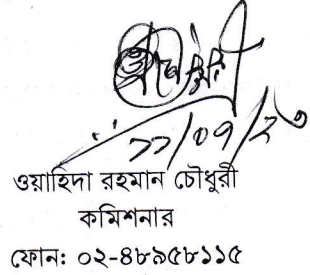 ১১/০৭/২৩
ওয়াহিদা রহমান চৌধুরী
কমিশনার
ফোন: ০২-৪৮৯৫৮১১৫